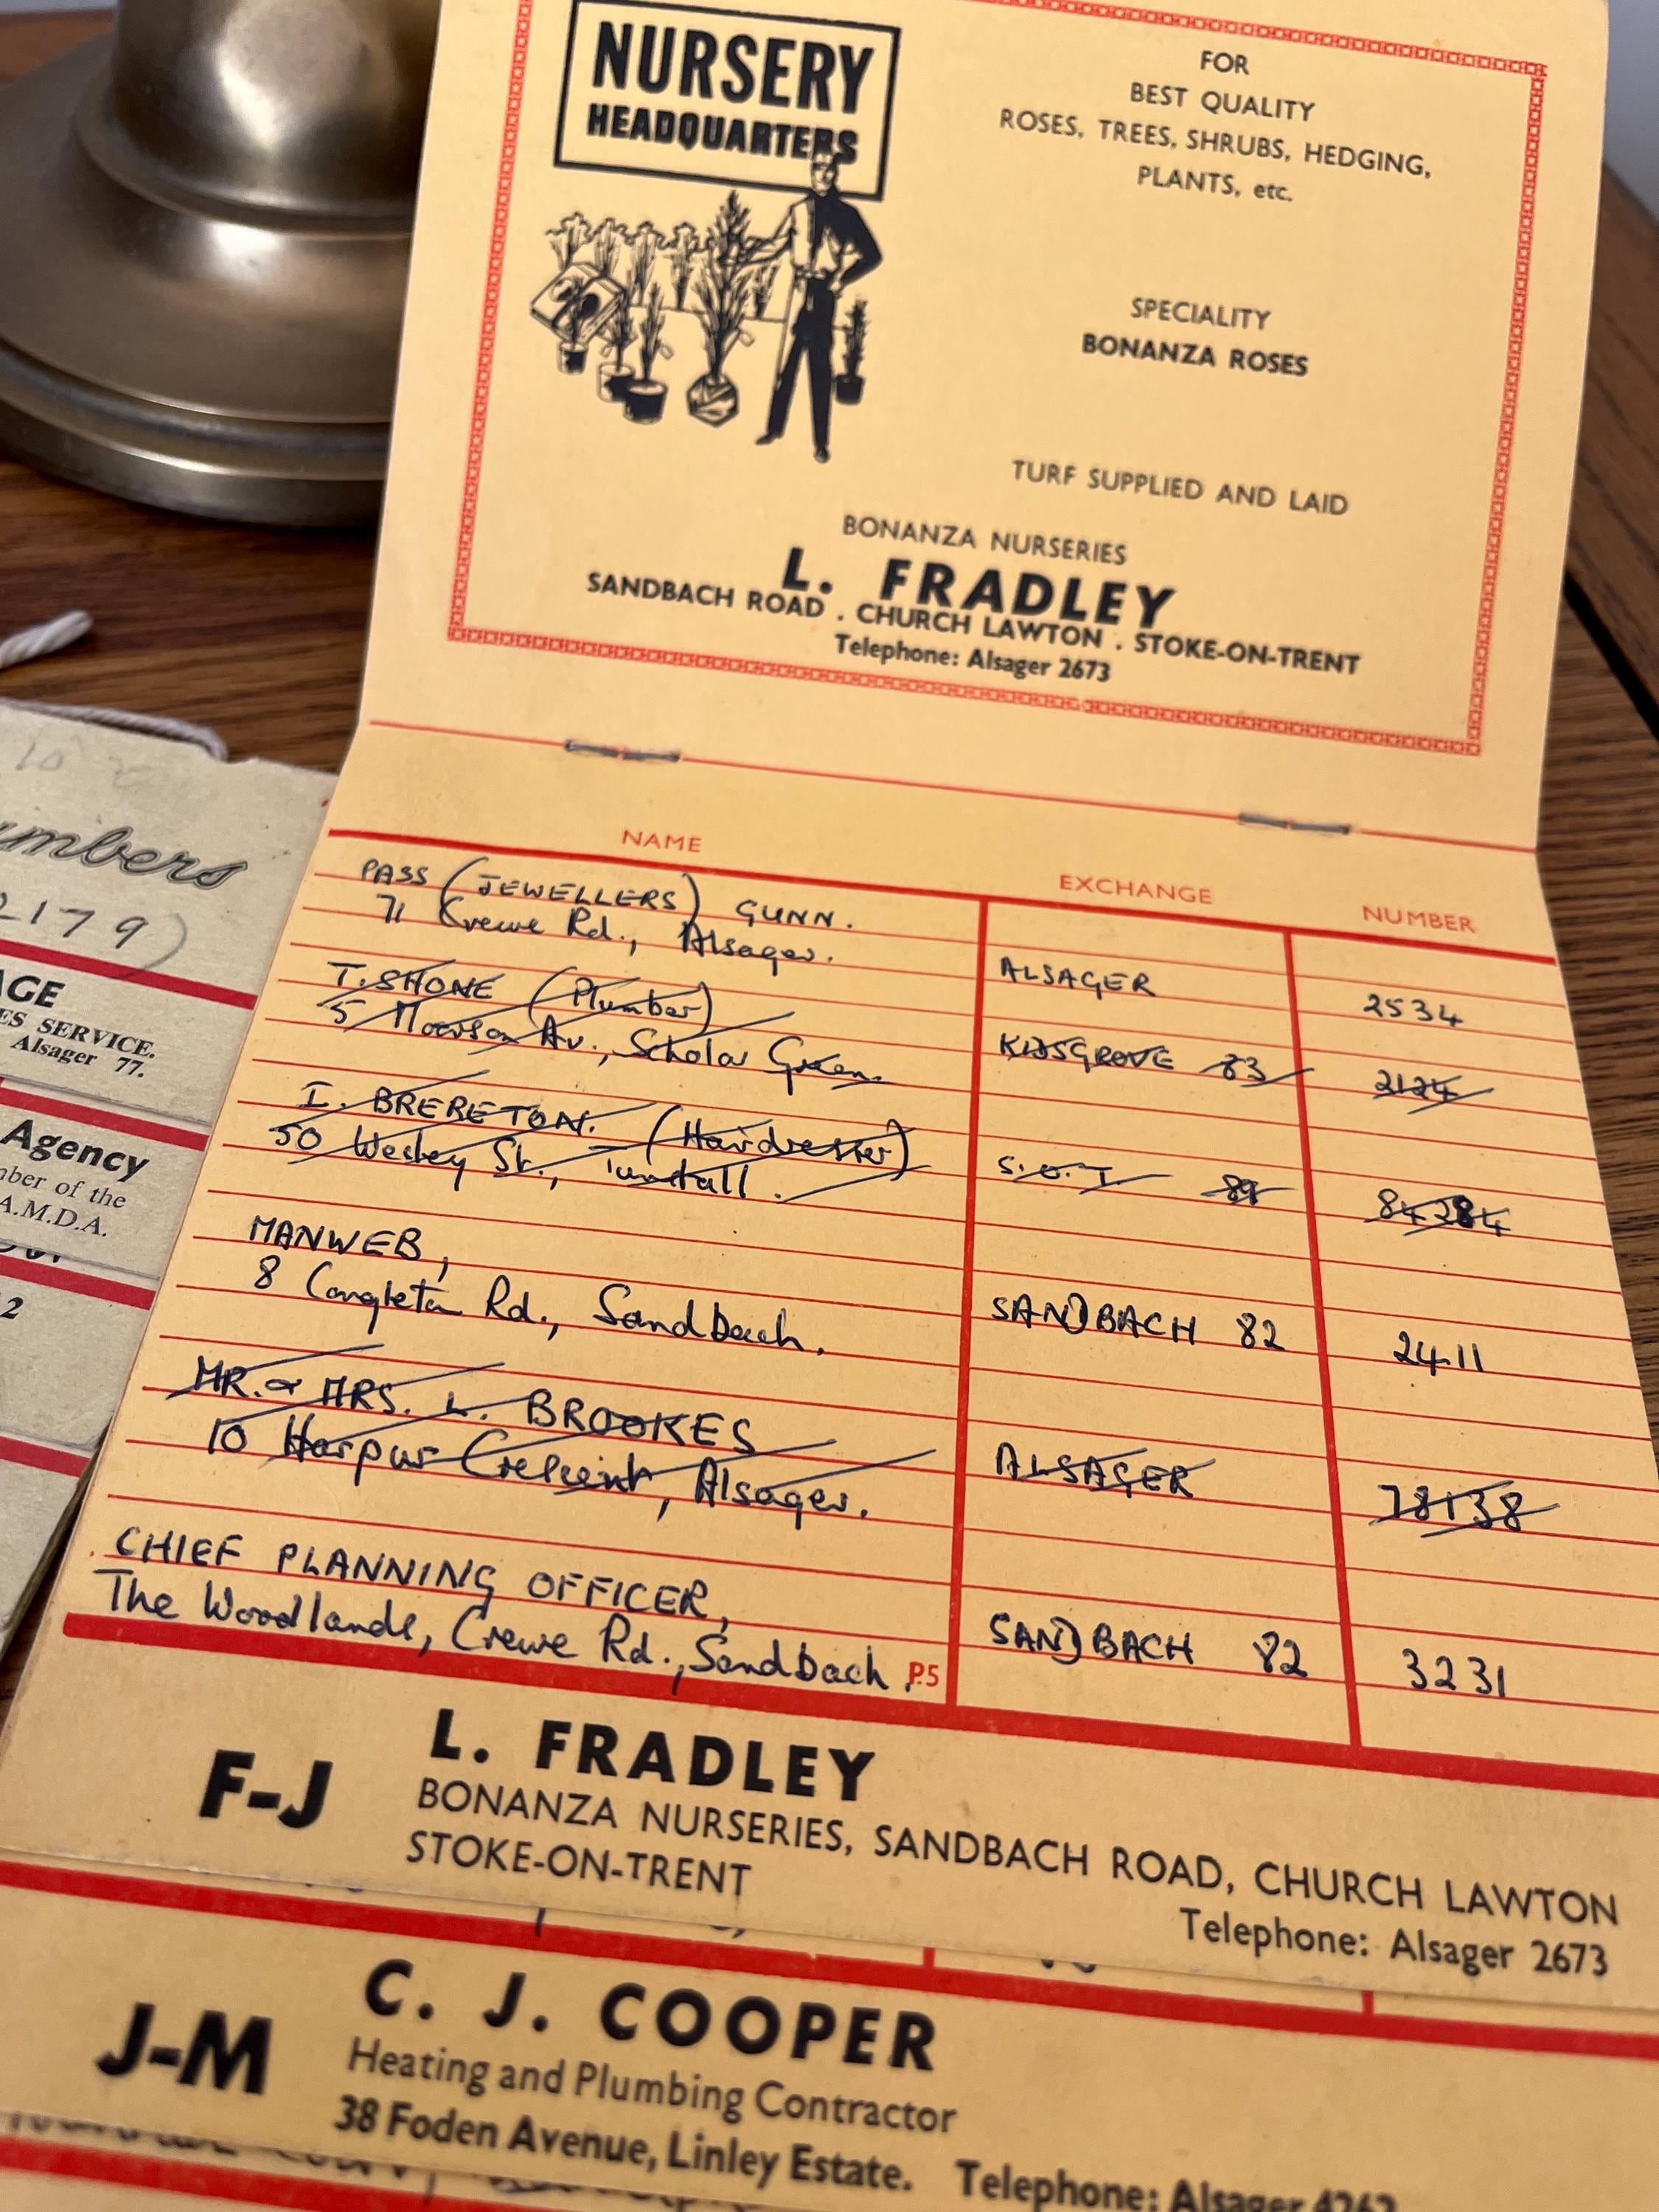 NURSERY
HEADQUARTERS
FOR
BEST QUALITY
ROSES, TREES, SHRUBS, HEDGING,
PLANTS, etc.
SPECIALITY
BONANZA ROSES
TURF SUPPLIED AND LAID
BONANZA NURSERIES
L. FRADLEY
SANDBACH ROAD . CHURCH LAWTON . STOKE-ON-TRENT
Telephone: Alsager 2673
NAME EXCHANGE NUMBER
PASS (JEWELLERS) GUNN.
71 Crewe Rd., Alsager. ALSAGER 2534
T. SHONE (Plumber)
5 Av., Scholar Green. KIDSGROVE 83 2124
I. BRERETON. (Hairdresser)
50 Wesley St., Tunstall. S.O.T 89 84284
MANWEB,
8 Congleton Rd., Sandbach. SANDBACH 82 2411
MR. & MRS. L. BROOKES
10 Harpur Crescent, Alsager. ALSAGER 78138
CHIEF PLANNING OFFICER,
The Woodlands, Crewe Rd., Sandbach. P.5 SANDBACH 82 3231
F-J
L. FRADLEY
BONANZA NURSERIES, SANDBACH ROAD, CHURCH LAWTON
STOKE-ON-TRENT
Telephone: Alsager 2673
J-M
C. J. COOPER
Heating and Plumbing Contractor
38 Foden Avenue, Linley Estate. Telephone: Alsager 4262
umbers
2179)
AGE
ES SERVICE.
Alsager 77.
Agency
mber of the
A.M.D.A.
2